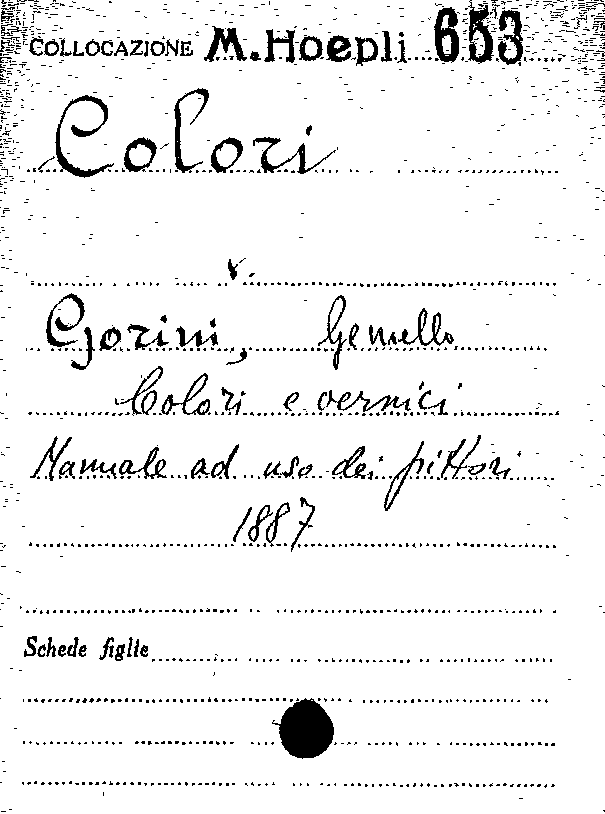 COLLOCAZIONE M. Hoepli 653
Colori
v.
Gorini, Gemello
Colori e vernici
Manuale ad uso dei pittori
1887
Schede figlie